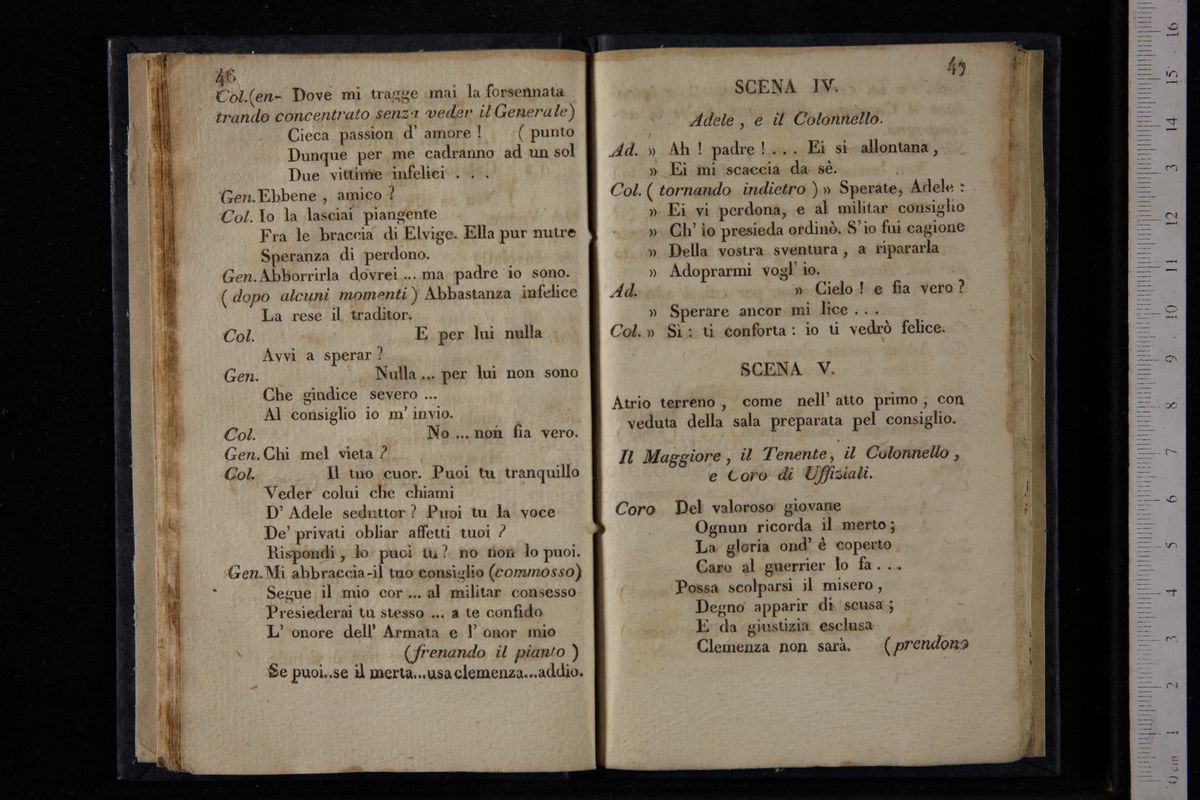 46
Col.(en- Dove mi tragge mai la forsennata
trando concentrato senza veder il Generale)
Cieca passion d' amore ! ( punto
Dunque per me cadranno ad un sol
Due vittime infelici . . .
Gen. Ebbene , amico ?
Col. Io la lasciai piangente
Fra le braccia di Elvige. Ella pur nutre
Speranza di perdono.
Gen. Abborrirla dovrei ... ma padre io sono.
( dopo alcuni momenti ) Abbastanza infelice
La rese il traditor.
Col. E per lui nulla
Avvi a sperar ?
Gen. Nulla ... per lui non sono
Che giudice severo ...
Al consiglio io m' invio.
Col. No ... non fia vero.
Gen. Chi mel vieta ?
Col. Il tuo cuor. Puoi tu tranquillo
Veder colui che chiami
D' Adele seduttor ? Puoi tu la voce
De' privati obliar affetti tuoi ?
Rispondi , lo puoi tu ? no non lo puoi.
Gen. Mi abbraccia-il tuo consiglio (commosso)
Segue il mio cor ... al militar consesso
Presiederai tu stesso ... a te confido
L' onore dell' Armata e l' onor mio
(frenando il pianto )
Se puoi..se il merta...usa clemenza...addio.
47
SCENA IV.
Adele , e il Colonnello.
Ad. » Ah ! padre ! . . . Ei si allontana ,
» Ei mi scaccia da sè.
Col. ( tornando indietro ) » Sperate, Adele :
» Ei vi perdona, e al militar consiglio
» Ch' io presieda ordinò. S' io fui cagione
» Della vostra sventura , a ripararla
» Adoprarmi vogl' io.
Ad. » Cielo ! e fia vero ?
» Sperare ancor mi lice . . .
Col. » Sì : ti conforta : io ti vedrò felice.
SCENA V.
Atrio terreno , come nell' atto primo , con
veduta della sala preparata pel consiglio.
Il Maggiore , il Tenente, il Colonnello ,
e Coro di Uffiziali.
Coro Del valoroso giovane
Ognun ricorda il merto ;
La gloria ond' è coperto
Caro al guerrier lo fa . . .
Possa scolparsi il misero ,
Degno apparir di scusa ;
E da giustizia esclusa
Clemenza non sarà. (prendono
0 cm 1 2 3 4 5 6 7 8 9 10 11 12 13 14 15 16